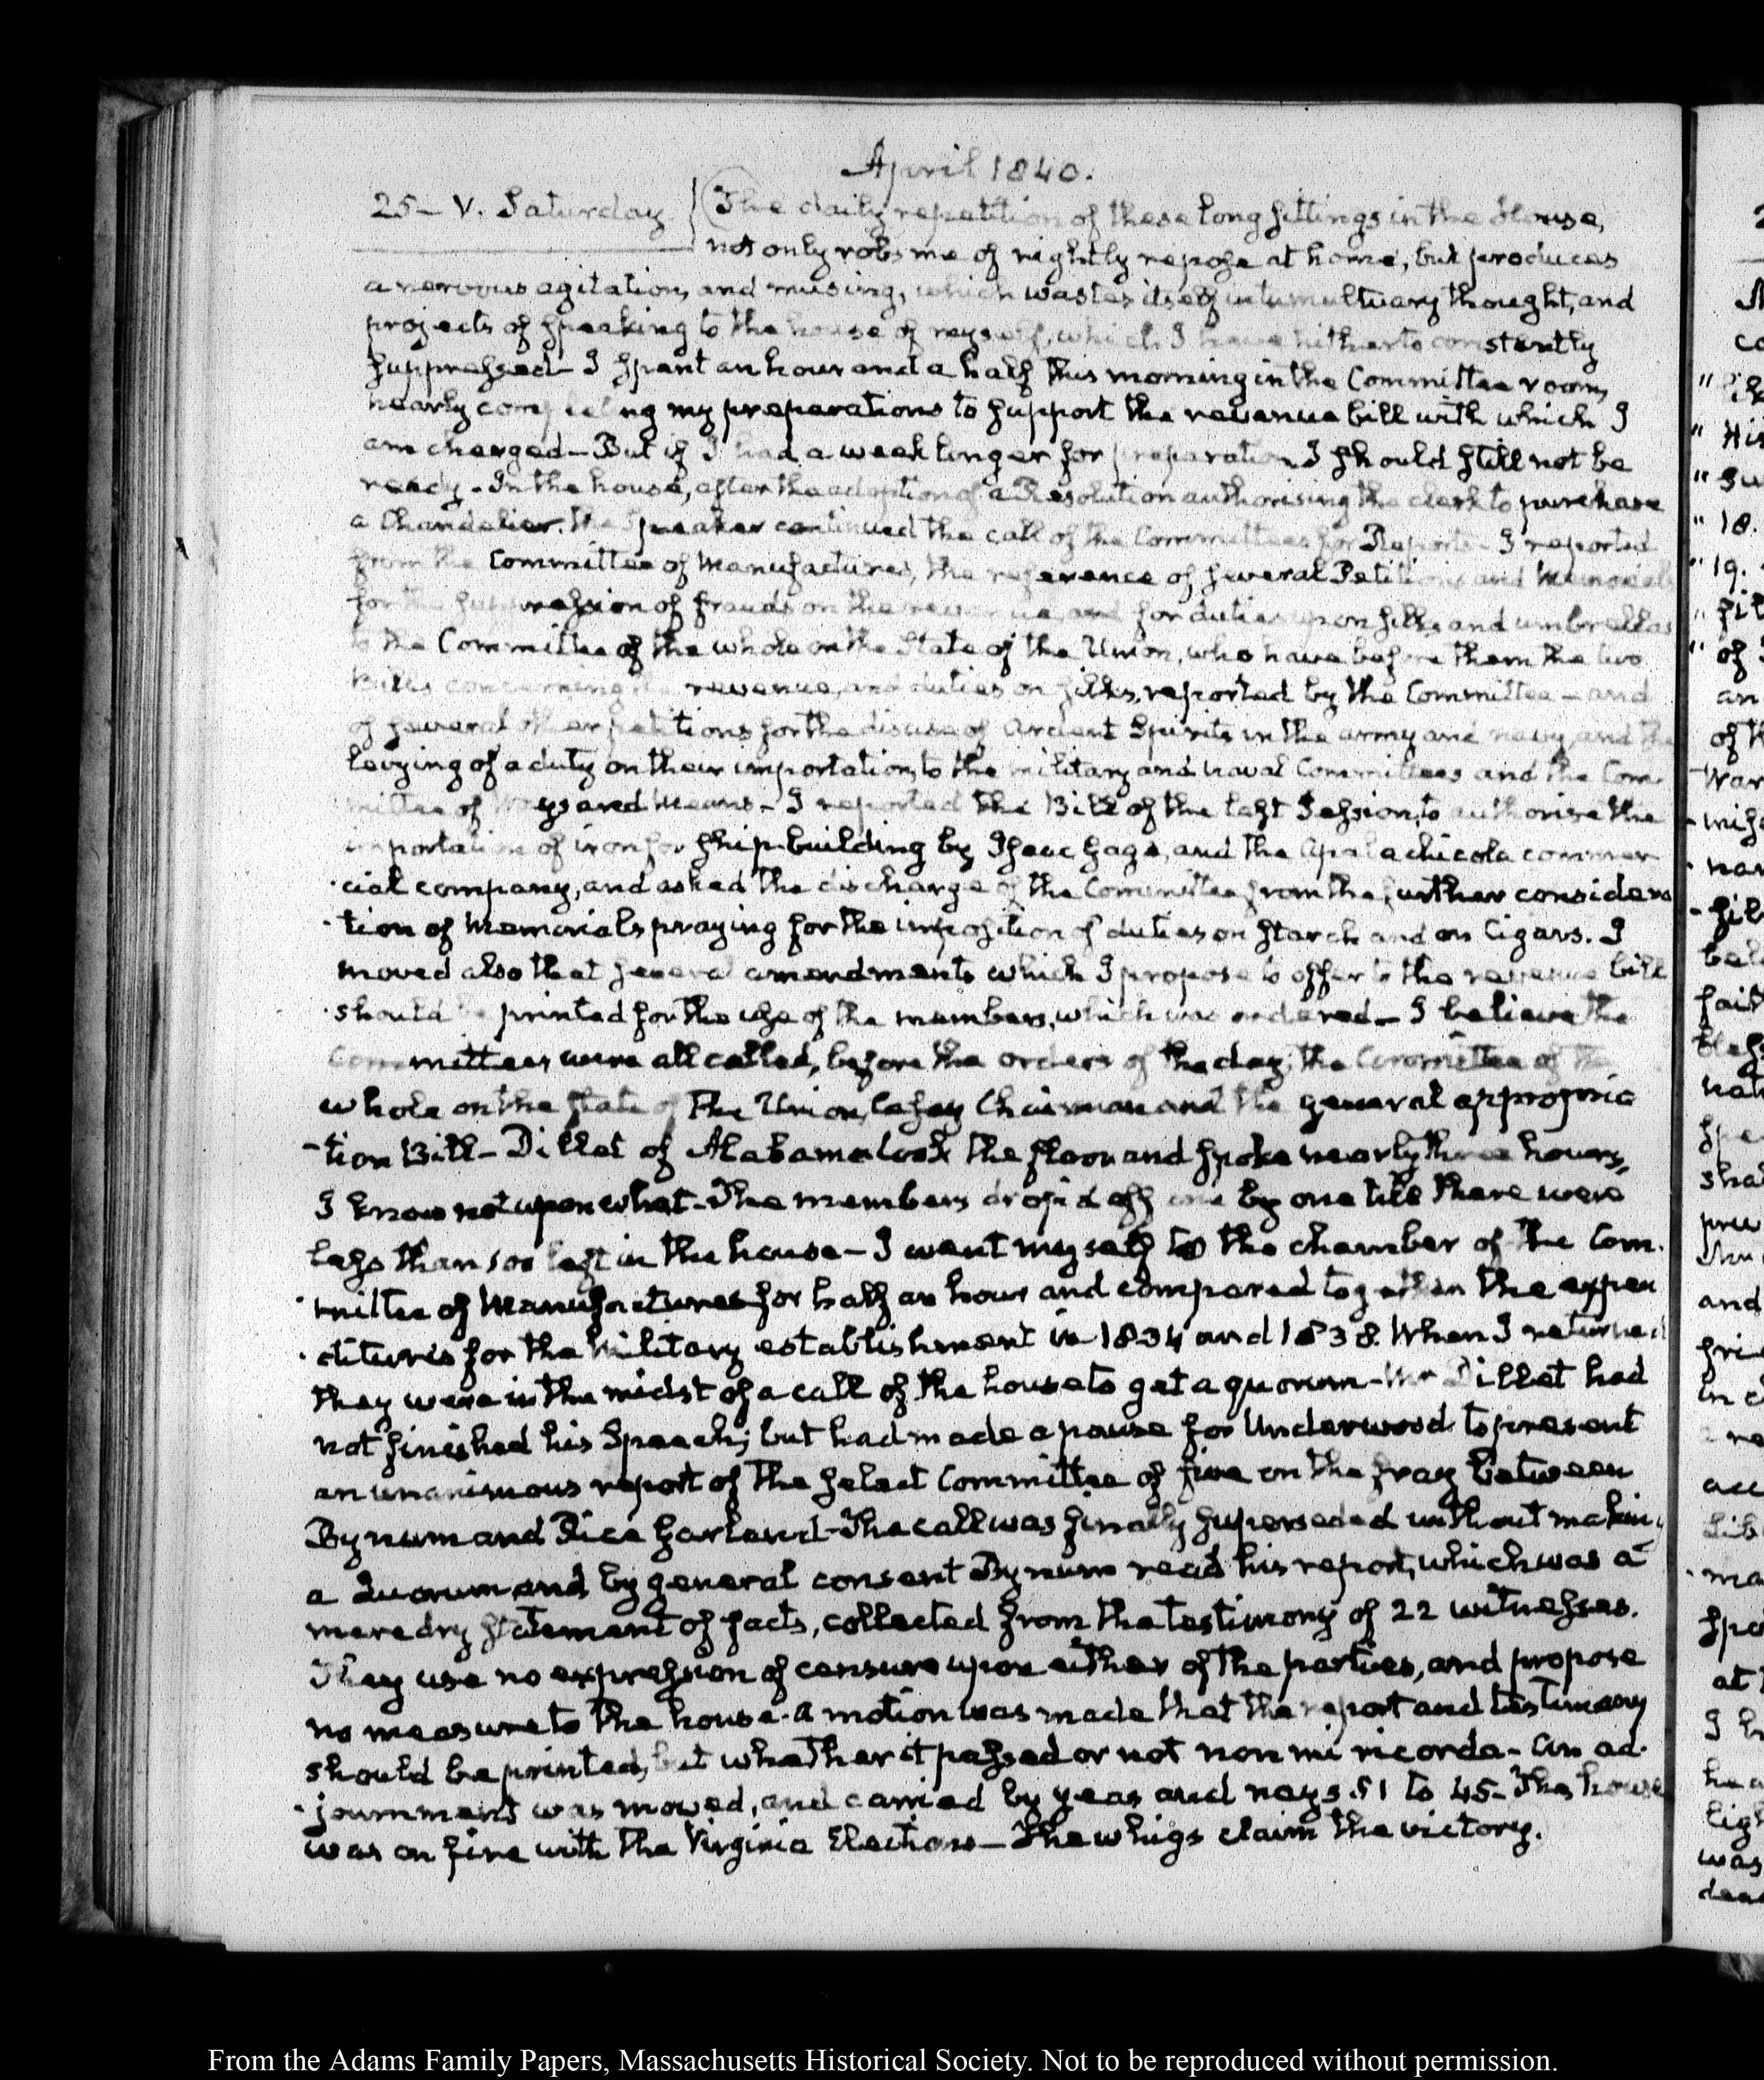 April 1840.
25 – V. Saturday. The daily repetition of these long sittings in the House,
not only robs me of nightly repose at home, but produces
a nervous agitation, and musing, which wastes itself in tumultuary thought, and
projects of speaking to the house of myself, which I have hitherto constantly
suppressed – I spent an hour and a half this morning in the Committee room,
nearly completing my preparations to support the revenue bill with which I
am charged – But if I had a week longer for preparation I should still not be
ready – In the house, after the adoption of a Resolution authorising the clerk to purchase
a Chandelier, the Speaker continued the call of the Committees for Reports – I reported
from the Committee of Manufactures, the reference of several Petitions and Memorials
for the suppression of frauds on the revenue, and for duties upon silks and umbrellas
to the Committee of the whole on the State of the Union, who have before them the two
Bills concerning the revenue, and duties on silks, reported by the Committee – and
of several other petitions for the disuse of Ardent Spirits in the army and navy, and the
levying of a duty on their importation, to the military and naval Committees and the Com
mittee of Ways and Means – I reported the Bill of the last Session, to authorise the
importation of iron for ship-building by Isaac Gage, and the Apalachicola commer
cial company, and asked the discharge of the Committee from the further considera
tion of Memorials praying for the imposition of duties on starch and on Cigars. I
moved also that several amendments which I propose to offer to the revenue bill
should be printed for the use of the members, which was ordered – I believe the
Committees were all called, before the orders of the day; the Committee of the
whole on the State of the Union, Casey Chairman and the general appropria
tion Bill – Dillet of Alabama took the floor and spoke nearly three hours,
I know not upon what – The members drop'd off one by one till there were
less than 100 left in the house – I went myself to the chamber of the Com.
mittee of Manufactures for half an hour and compared together the expen
ditures for the Military establishment in 1834 and 1838. When I returned
they were in the midst of a call of the house to get a quorum – Mr Dillet had
not finished his Speech; but had made a pause for Underwood to present
an unanimous report of the select Committee of five on the fray between
Bynum and Rice Garland – The call was finally superseded without making
a Quorum and by general consent Bynum read his report, which was a
mere dry statement of facts, collected from the testimony of 22 witnesses.
They use no expression of censure upon either of the parties, and propose
no measure to the house. A motion was made that the report and testimony
should be printed, but whether it passed or not non mi ricorda – An ad
journment was moved, and carried by yeas and nays. 51 to 45 – The house
was on fire with the Virginia Elections – The whigs claim the victory.
From the Adams Family Papers, Massachusetts Historical Society. Not to be reproduced without permission.